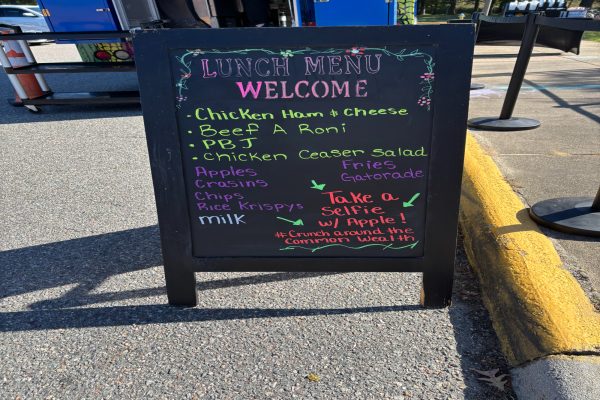 LUNCH MENU
WELCOME
• Chicken Ham & Cheese
• Beef A Roni
• PBJ
• Chicken Ceaser Salad
Apples
Crasins
Chips
Rice Krispys
milk
Fries
Gatorade
Take a
Selfie
w/ Apple!
#Crunch around the
Common Wealth